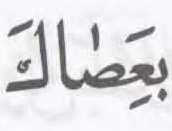 بِعَصَاكَ